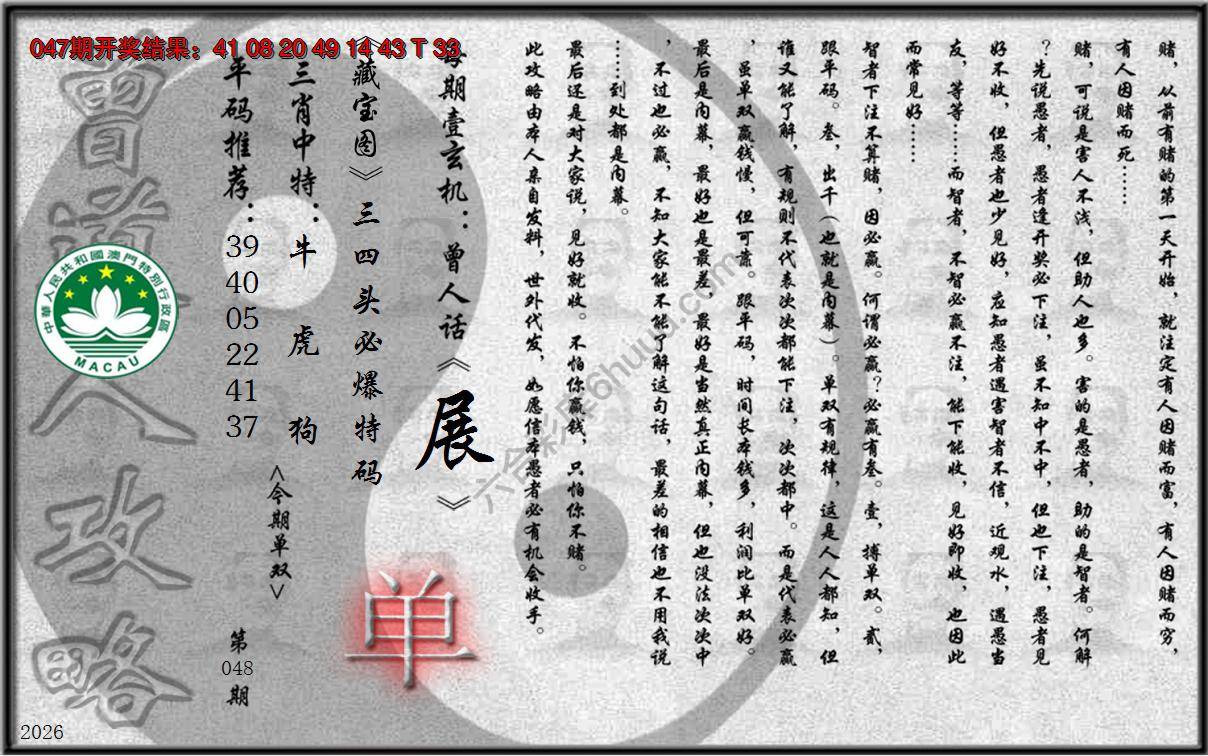 047期开奖结果：41 08 20 49 14 43 T 33
赌，从前有赌的第一天开始，就注定有人因赌而富，有人因赌而穷，
有人因赌而死……
赌，可说是害人不浅，但助人也多。害的是愚者，助的是智者。何解
？先说愚者，愚者逢开奖必下注，虽不知中不中，但也下注，愚者见
好不收，但愚者也少见好，应知愚者遇害智者不信，近观水，遇愚当
友，等等……而智者，不智必赢不注，能下能收，见好即收，也因此
而常见好……
智者下注不算赌，因必赢。何谓必赢？必赢有叁。壹，搏单双。贰，
跟平码。叁，出千（也就是内幕）。单双有规律，这是人人都知，但
谁又能了解，有规则不代表次次都能下注，次次都中。而是代表必赢
，虽单双赢钱慢，但可靠。跟平码，时间长本钱多，利润比单双好。
最后是内幕，最好也是最差，最好是当然真正内幕，但也没法次次中
，不过也必赢，不知大家能不能了解这句话，最差的相信也不用我说
……到处都是内幕。
最后还是对大家说，见好就收。不怕你赢钱，只怕你不赌。
此攻略由本人亲自发料，世外代发，如愿信本愚者必有机会收手。
每期壹玄机：曾人话《展》
《藏宝图》三四头必爆特码
单
三肖中特：牛 虎 狗
<今期单双>
平码推荐：39 40 05 22 41 37
第048期
曾道人攻略
中華人民共和國澳門特別行政區
MACAU
2026